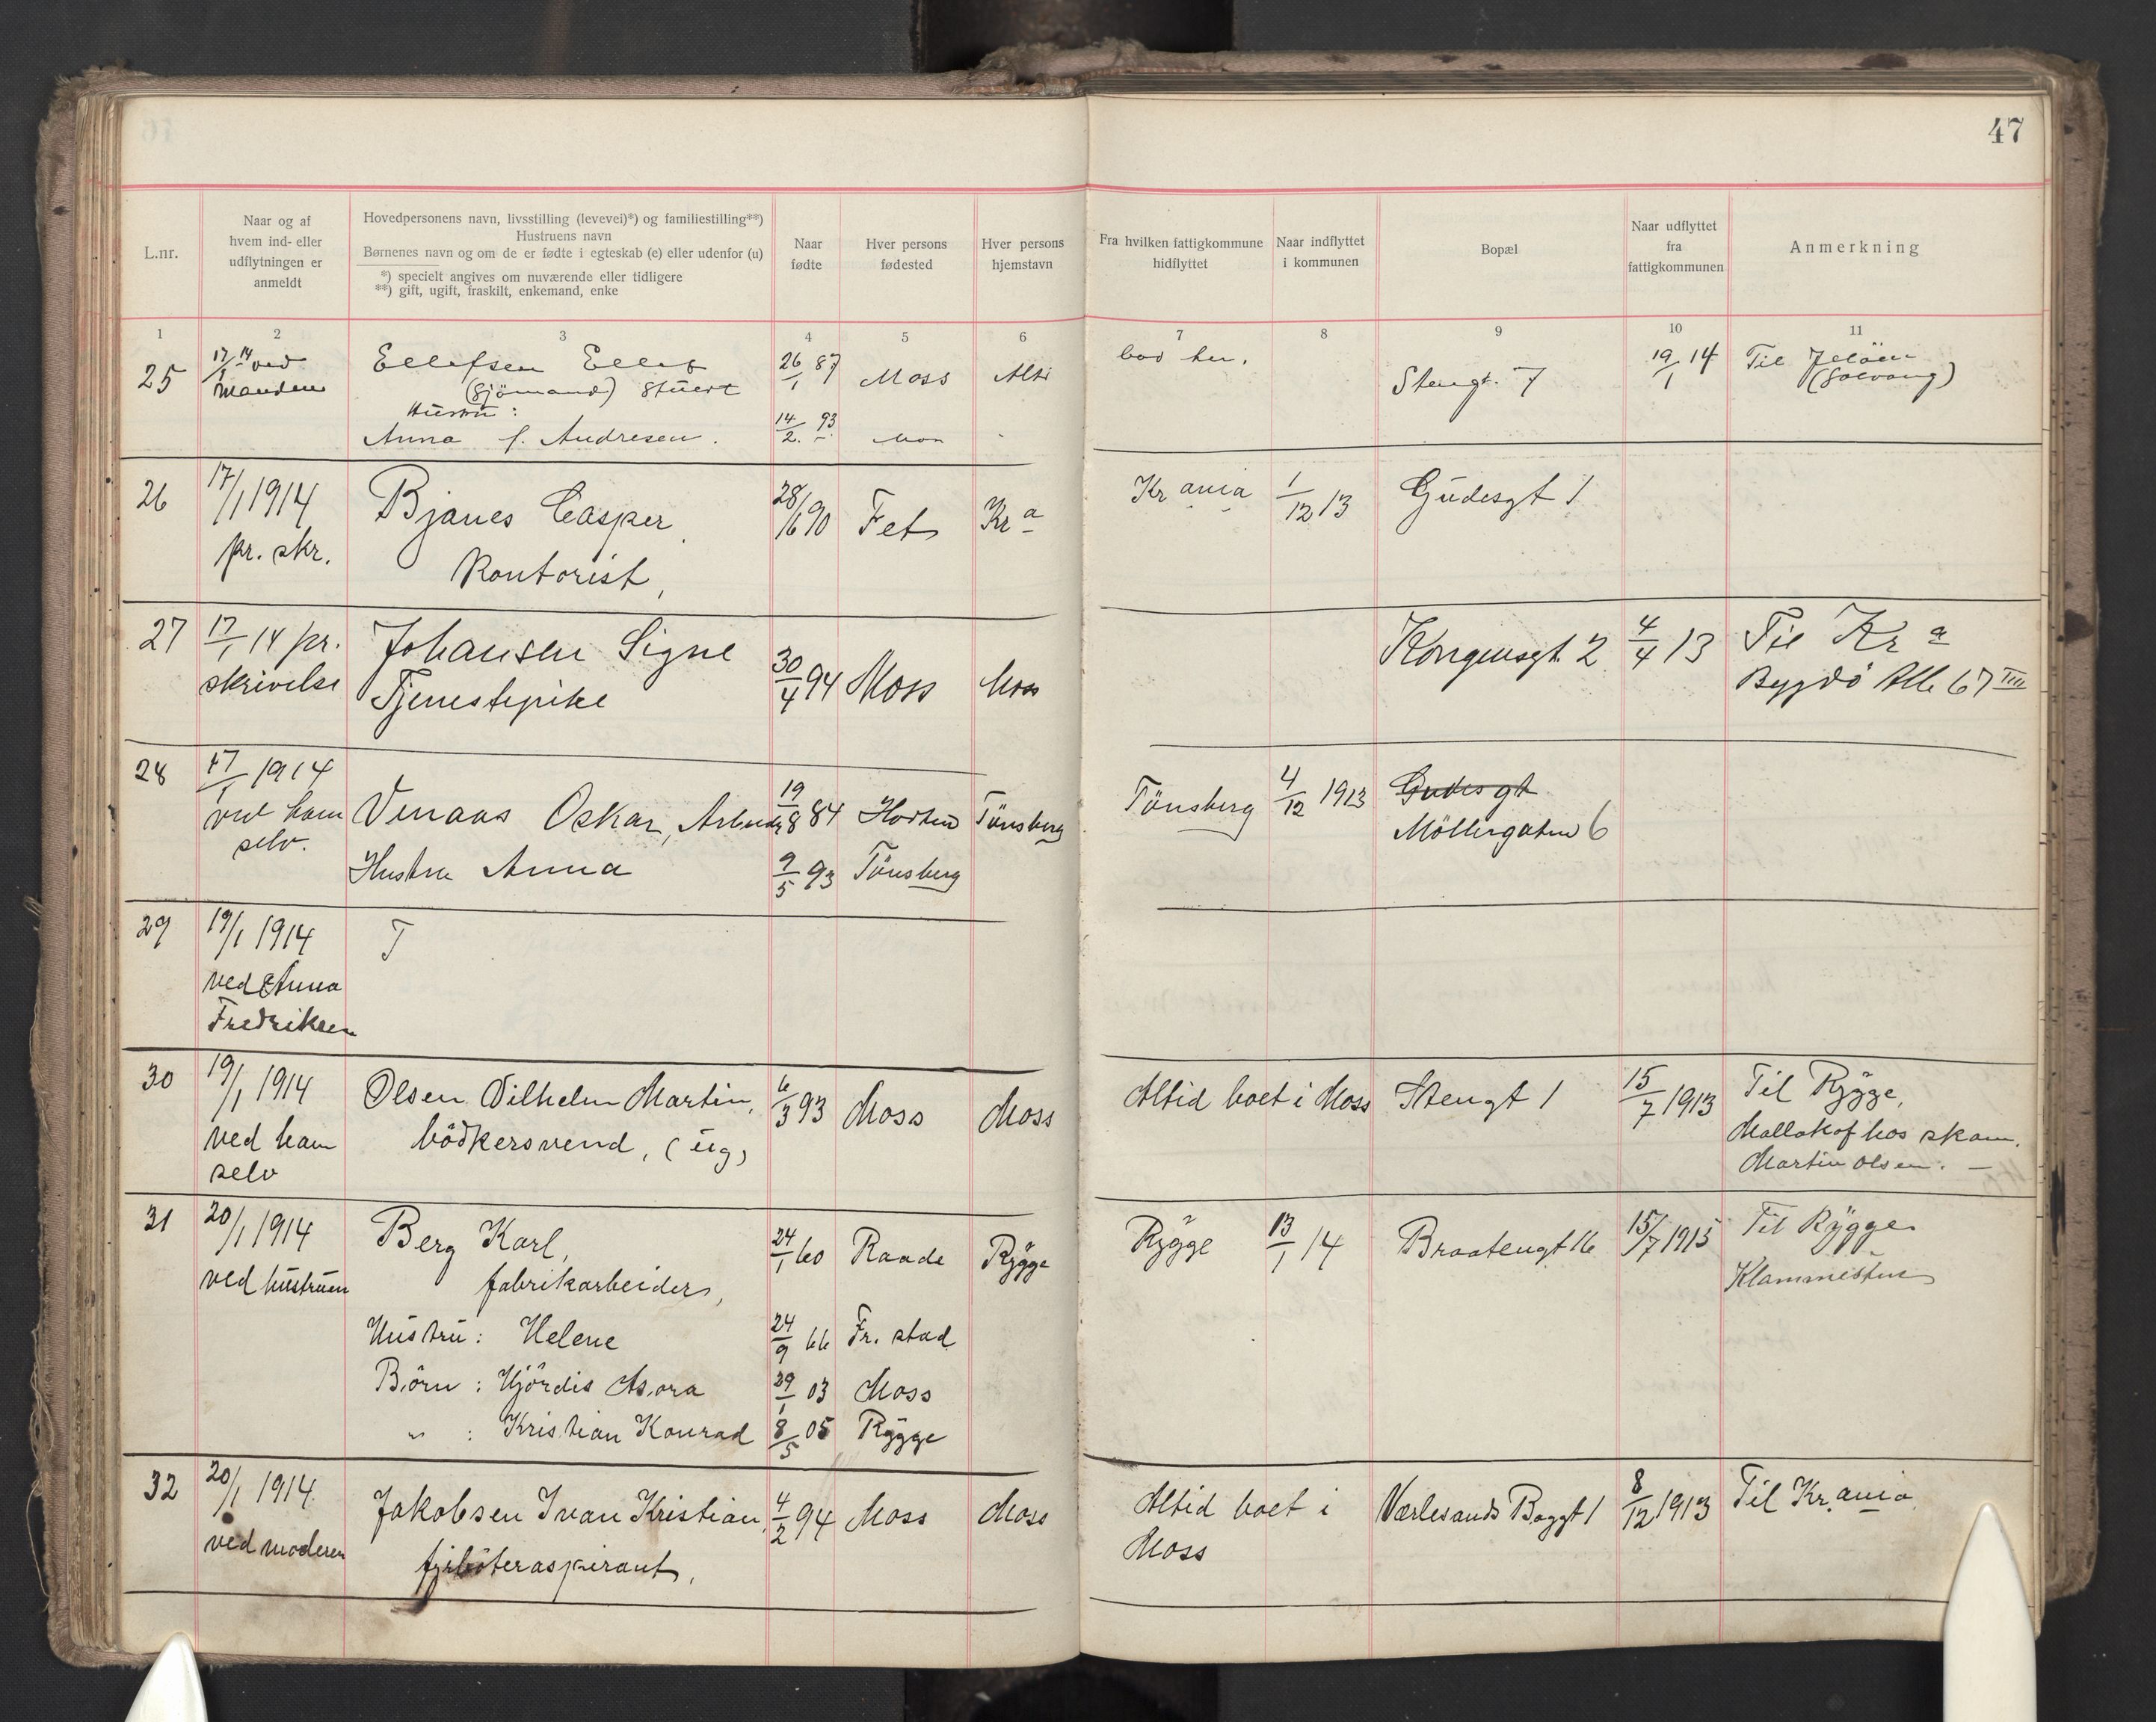 47
L.nr.
Naar og af
hvem ind- eller
udflytningen er
anmeldt
Hovedpersonens navn, livsstilling (levevei)*) og familiestilling**)
Hustruens navn
Børnenes navn og om de er fødte i egteskab (e) eller udenfor (u)
*) specielt angives om nuværende eller tidligere
**) gift, ugift, fraskilt, enkemand, enke
Naar
fødte
Hver persons
fødested
Hver persons
hjemstavn
Fra hvilken fattigkommune
hidflyttet
Naar indflyttet
i kommunen
Bopæl
Naar udflyttet
fra
fattigkommunen
Anmerkning
1 2 3 4 5 6 7 8 9 10 11
25 17/1 14 ved Ellefsen Ellef 26/1 87 Moss bod her. Stengt. 7 19/1 14 Til Jelöen
manden (Sjömand) Stuert (Solvang)
Hustru:
Anna f. Andresen. 14/2. 93
26 17/1 1914 Bjanes Casper 28/6 90 Fet Kr a Krania 1/12 13 Gudesgt 1
pr. skr. Kontorist,
27 17/1 14 pr. Johansen Signe 30/4 94 Moss Moss Kongensgt. 2 4/4 13 Til Kr a
skrivelse Tjenestepike Bygdö Alle 67 III
28 17/1 1914 Venaas Oskar, Arbeider 19/8 84 Horten Tönsberg Tönsberg 4/12 1913 Gudesgt
ved ham Möllergaten 6
selv.
Hustru Anna 9/5 93 Tönsberg
29 19/1 1914 T
ved Anna
Fredriksen
30 19/1 1914 Olsen Vilhelm Martin, 6/3 93 Moss Moss Altid boet i Moss Stengt 1 15/7 1913 Til Rygge,
ved ham bödkersvend, (ug) Mallakof hos skom.
selv Martin Olsen. —
31 20/1 1914 Berg Karl, 24/1 60 Raade Rygge Rygge 13/1 14 Braatengt 16 15/7 1915 Til Rygge
ved hustruen fabrikarbeider, Klommestuen
Hustru: Helene 24/9 66 Fr.stad
Börn: Hjördis Asora 29/1 03 Moss
„ : Kristian Konrad 8/5 05 Rygge
32 20/1 1914 Jakobsen Ivan Kristian, 4/2 94 Moss Moss Altid boet i Værlesands Baggt 1 8/12 1913 Til Krania
ved moderen fyrböteraspirant, Moss